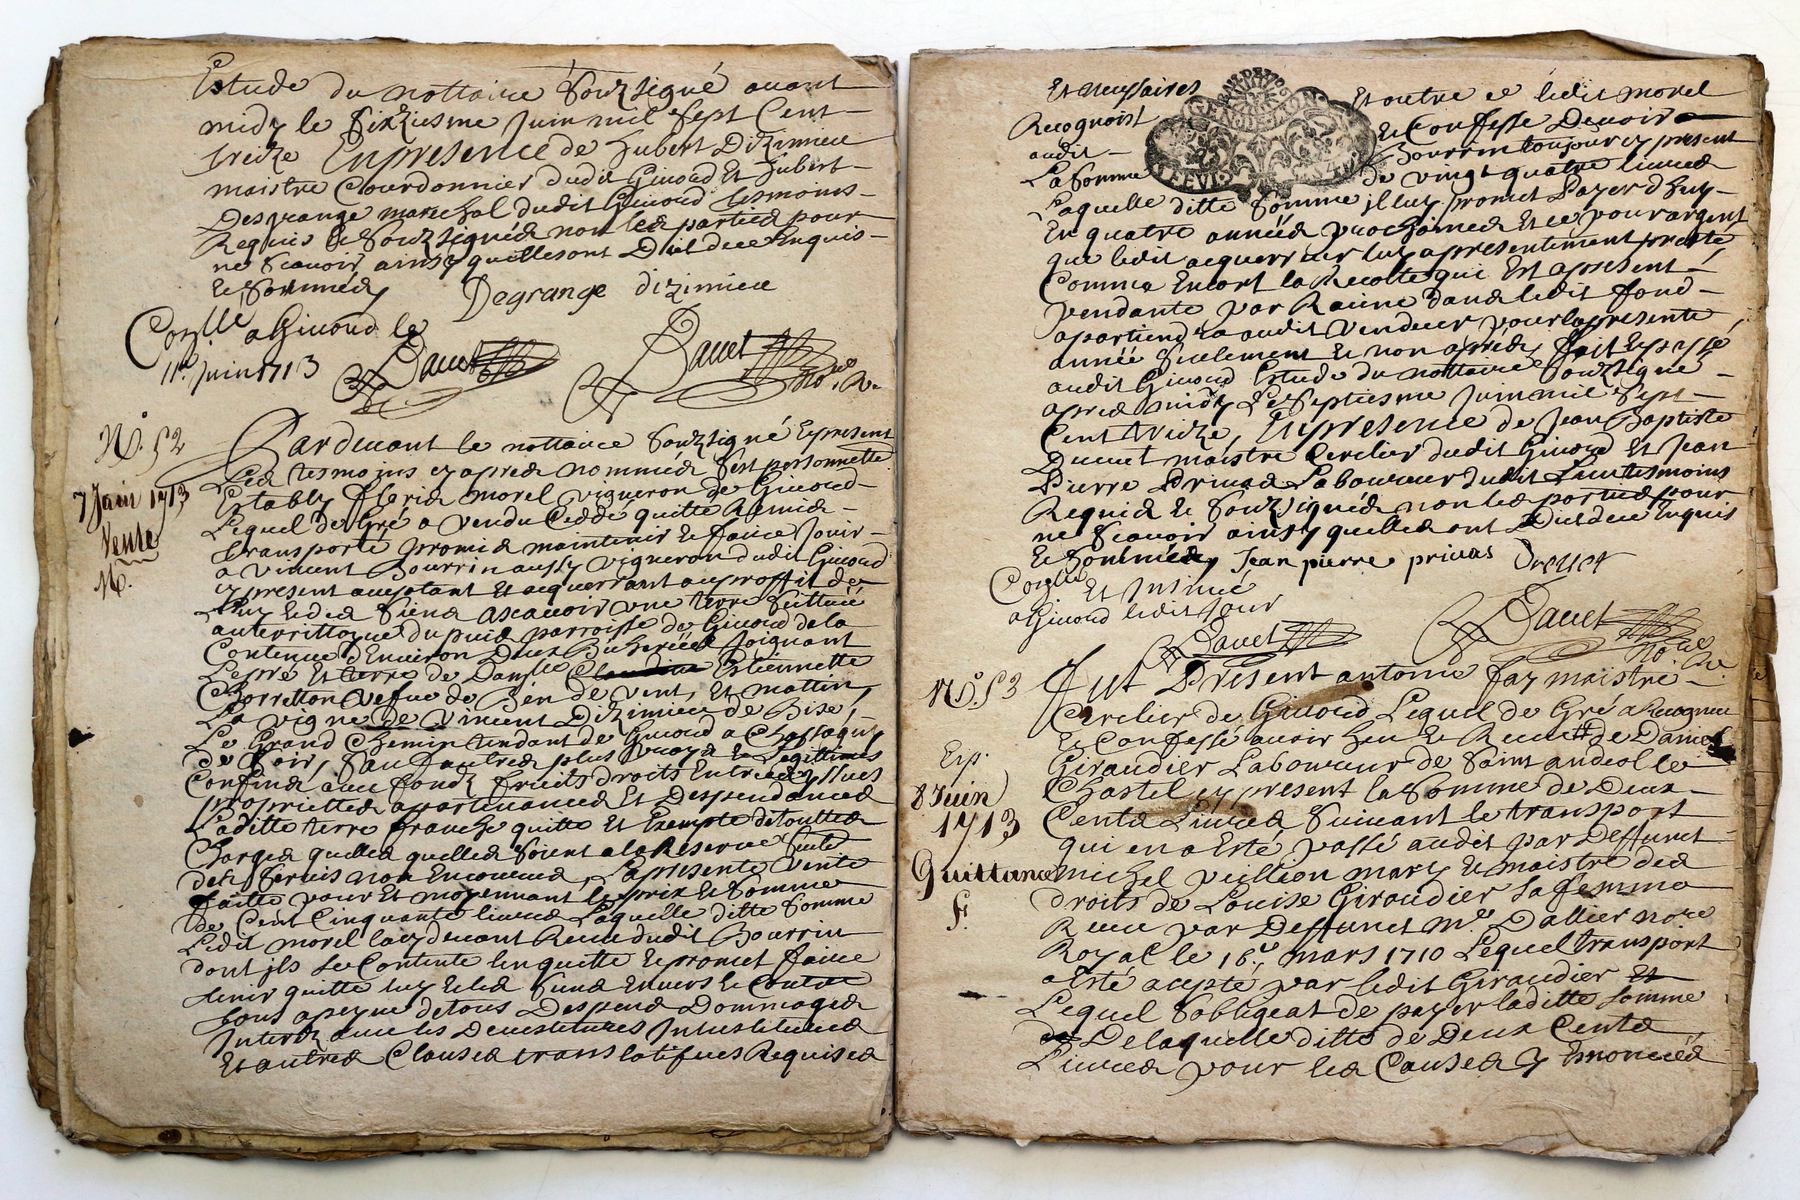 Estude du nottaire Soubzsigné avant
midy le Sixziesme Juin mil Sept Cent
treize En presence de hubert Dizimieu
maistre Courdonnier dudit Givord Et hubert
Desgrange mareschal dudit Givord tesmoins
Requis Et Soubzsignéz non lez partiez pour
ne Scavoir ainsy quelles ont Dict dece Enquis
Et Sommééz
Degrange dizimieu
Con.lle a Givord le
11.e Juin 1713
Dauet Dauet
no.re R.
N.° 52
7 Juin 1713
Vente
M.
Pardevant le nottaire Soubzsigné Et present
Lez tesmoins cy aprez nomméz S'est personnellet
Estably fleris morel vigneron de Givord
Lequel de Gré a Vendu Ceddé quitte Remis
transporté promis maintenir Et faire Jouir
a Vincent Bourrin aussy vigneron dudit Givord
cy present aceptant Et acquerrant au proffit de
Luy Et dez Siens ascavoir une terre Scittuée
au territtoyre du puis parroisse de Givord de la
Contenue d'Environ Deux Bicheréez Joignant
Le pré Et terre de Dam.lle Estiennette
Chorretton Vefve de Ben de vent, Et mattin,
La vigne de Vincent Dizimieu de Bize,
Le Grand Chemin tendant de Givord a Chassagny
de Soir, Sauf autrez plus vrayz Et Legittimes
Confins, avec fondz fruits droits Entréez yssues
propriettez apartenancez Et Despendancez
Laditte terre franche quitte Et Exempte de touttez
Chargez quellez quellez Soient a la Reserve
des Servis non Encourus, La presente Vente
faitte pour Et moyennant le prix Et Somme
de Cent Cinquante livrez Laquelle ditte Somme
Ledit morel la cy devant Receu dudit Bourrin
dont jls Se Contente l'en quitte Et promet faire
tenir quitte luy Et lez Siens Envers Et Contre
tous a peyne de tous Despens Dommagez
Jnterez avec les Devestitures Jnvestiturez
Et autrez Clausez translatifves Requisez
Et necessaires Et outre ce ledit morel
Recognoist Et Confesse Devoir
audit Bourrin toujour cy present
La Somme de vingt quatre livrez
Laquelle ditte Somme jl luy promet payer d'huy
En quatre annéez prochainez Et ce pour argent
que ledit acquerreur luy a presentement presté
Comme Encort la Recolte qui Est a present
pendante par Racine danz ledit fond
apartiendra audit Vendeur pour la presente
année Seulement Et non aprez, fait Et passé
audit Givord Estude du nottaire Soubzsigné
aprez midy Le Septiesme Juin mil Sept
Cent treize, En presence de Jean Baptiste
Duvet maistre Cerclier dudit Givord Et Jean
Pierre Privaz Laboureur dudit Lieu tesmoins
Requis Et Soubzsignéz non lez partiez pour
ne Scavoir ainsy quellez ont Dict dece Enquis
Et Sommééz, Jean pierre privas
Con.lle Et Jnsinué
a Givord ledit Jour
Dauet Dauet
no.re R.
N.° 53
Exp.
8 Juin
1713
Quittance
f.
fut Present antoine fay maistre
Cerclier de Givord Lequel de Gré a Recogneu
Et Confessé avoir heu Et Receu de Daniel
Giraudier Laboureur de Saint andeol le
Chastel cy present la Somme de Deux
Centz Livrez Suivant le transport
qui en a Esté passé audit par Deffunct
michel Veillion mary Et maistre dez
droits de Louise Giraudier Sa femme
Receu par Deffunct m.e Dallier nore
Royal le 16.e mars 1710 Lequel transport
a Esté acepté par ledit Giraudier Et
Lequel S'obligeat de payer laditte Somme
De laquelle ditte de Deux Centz
Livrez pour lez Causez y Enoncééz